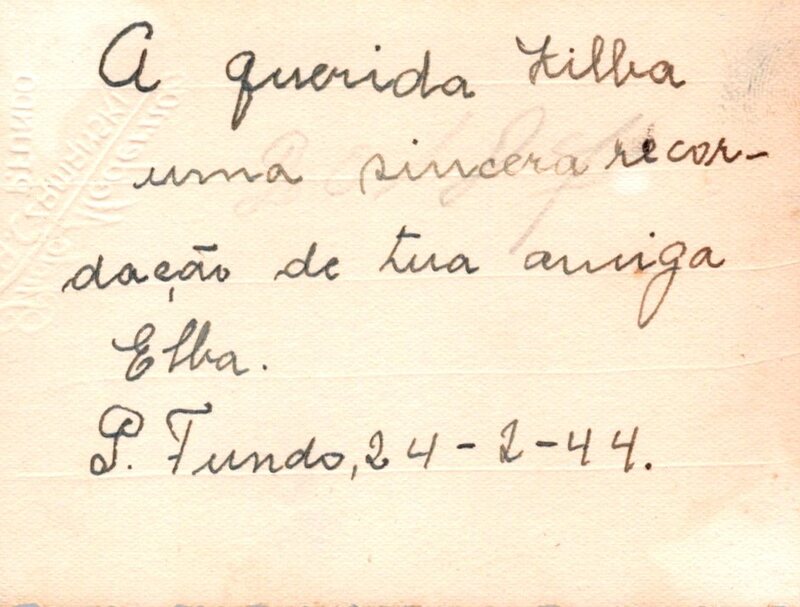 A querida Hilba
uma sincera recor-
dação de tua amiga
Elba.
P. Fundo, 24-2-44.